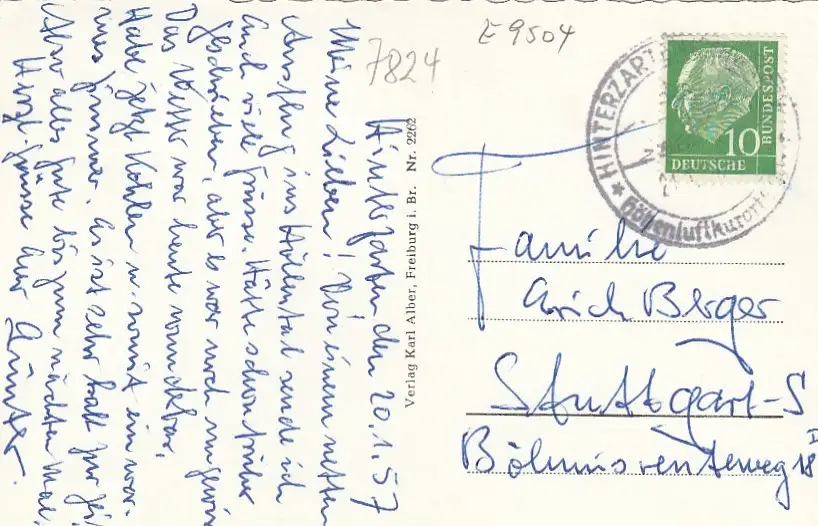 Hinterzarten den 20.1.57
Meine Lieben! Von einem netten
Ausflug ins Höllental sende ich
Euch viele Grüsse. Hätte schon früher
geschrieben, aber es war noch ungewiss
Das Wetter war heute wunderbar.
Habe jetzt Kohlen u. somit ein war-
mes Zimmer. Es ist sehr kalt zur Zeit
Also alles Gute bis zum nächsten Mal.
Herzl. Grüsse Euer Günter.
7824
E 9504
Verlag Karl Alber, Freiburg i. Br. Nr. 2262
HINTERZARTEN
Höhenluftkurort
10
DEUTSCHE
BUNDESPOST
Familie
Erich Berger
Stuttgart-S
18 II